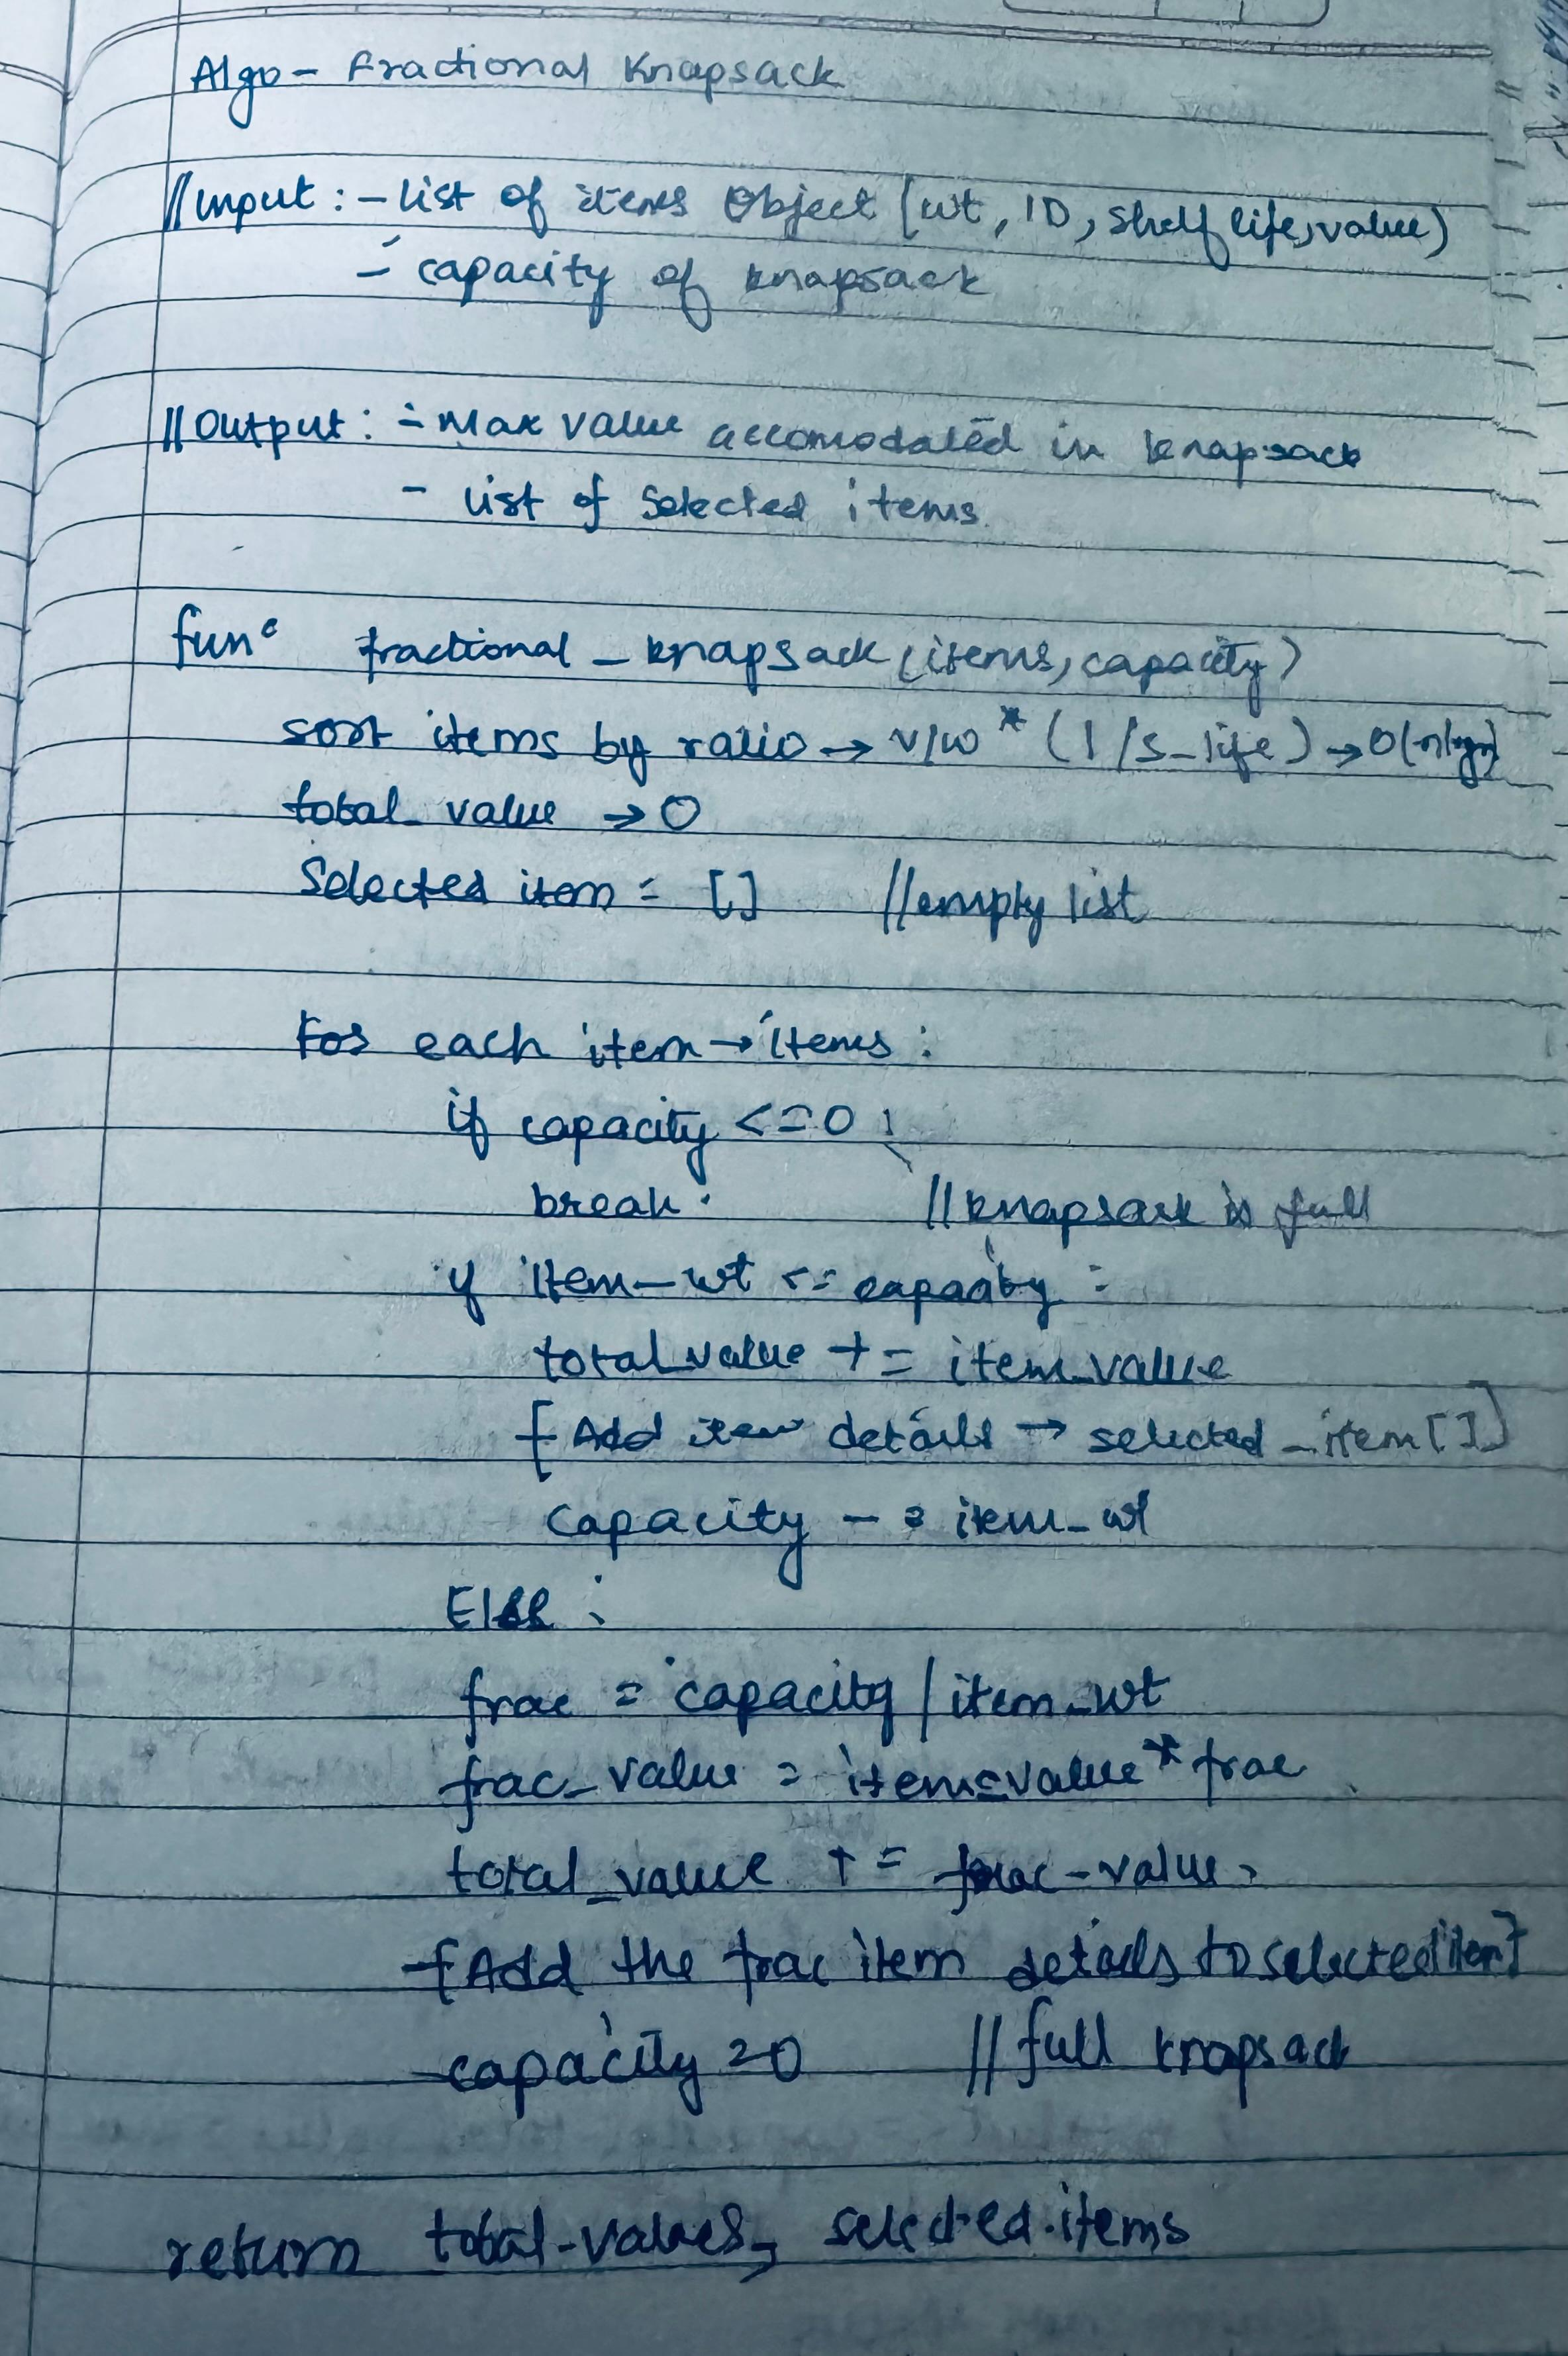 Algo - Fractional Knapsack
//Input : - list of items Object (wt, ID, shelf life, value)
- capacity of knapsack
//Output : - Max value accomodated in knapsack
- list of selected items.
func fractional_knapsack (items, capacity)
sort items by ratio → v/w * (1/s_life) → O(nlogn)
total_value → 0
Selected item = [] //empty list
For each item → items :
if capacity <= 0 :
break. //knapsack is full
if item_wt <= capacity :
total_value += item_value
[Add item details → selected_item[]]
capacity -= item_wt
Else :
frac = capacity / item_wt
frac_value = item_value * frac
total_value += frac_value
[Add the frac item details to selected item]
capacity = 0 //full knapsack
return total_values, selected.items